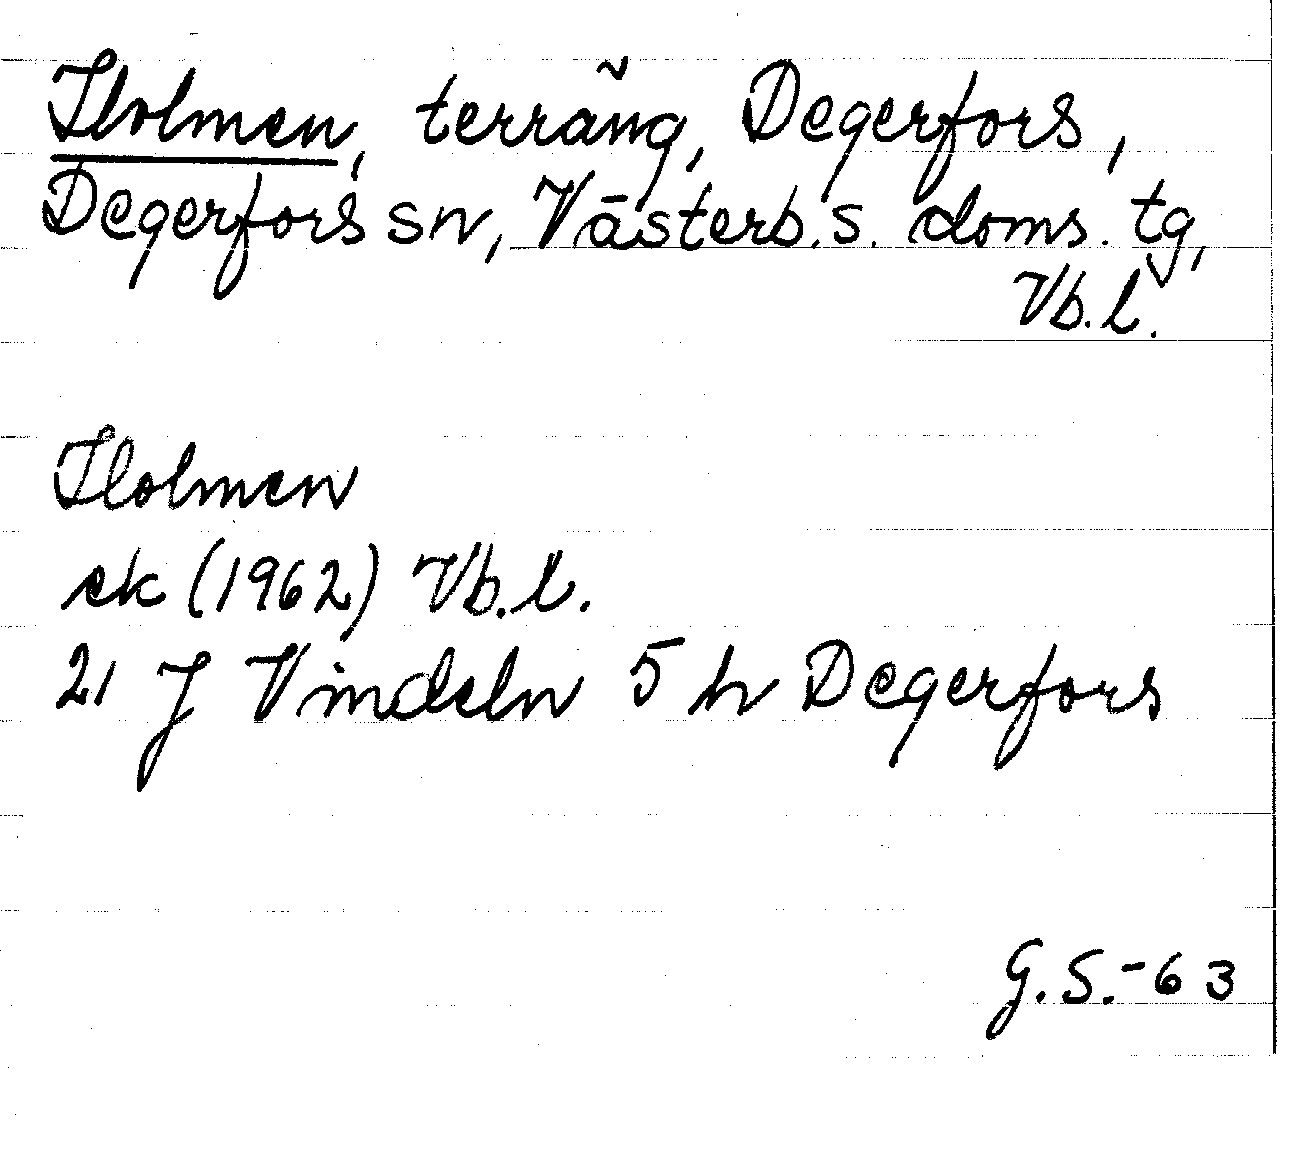 Holmen, terräng, Degerfors,
Degerfors sn, Västerb. s. doms. tg,
Vb. l.
Holmen
ek (1962) Vb. l.
21 J Vindeln 5 h Degerfors
G. S. -63